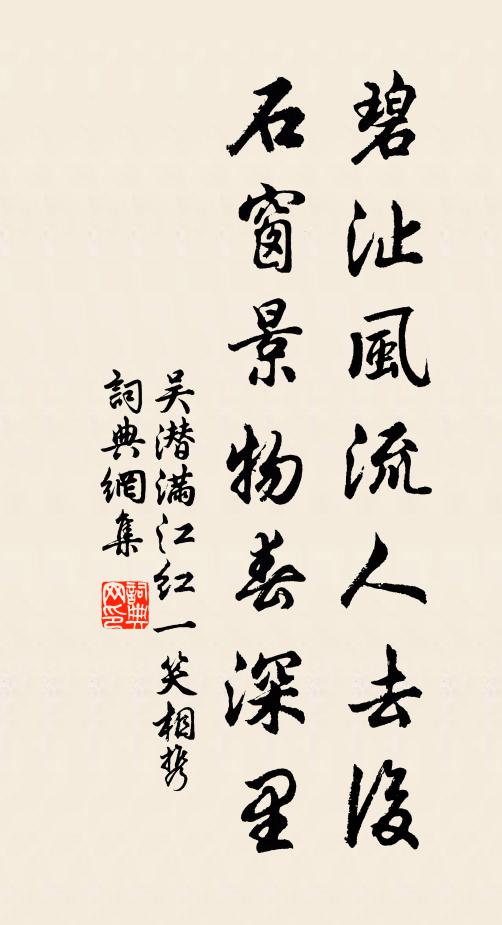 碧沚風流人去後
石窗景物春深里
吴潜满江红一笑相携
詞典網集
詞典网印